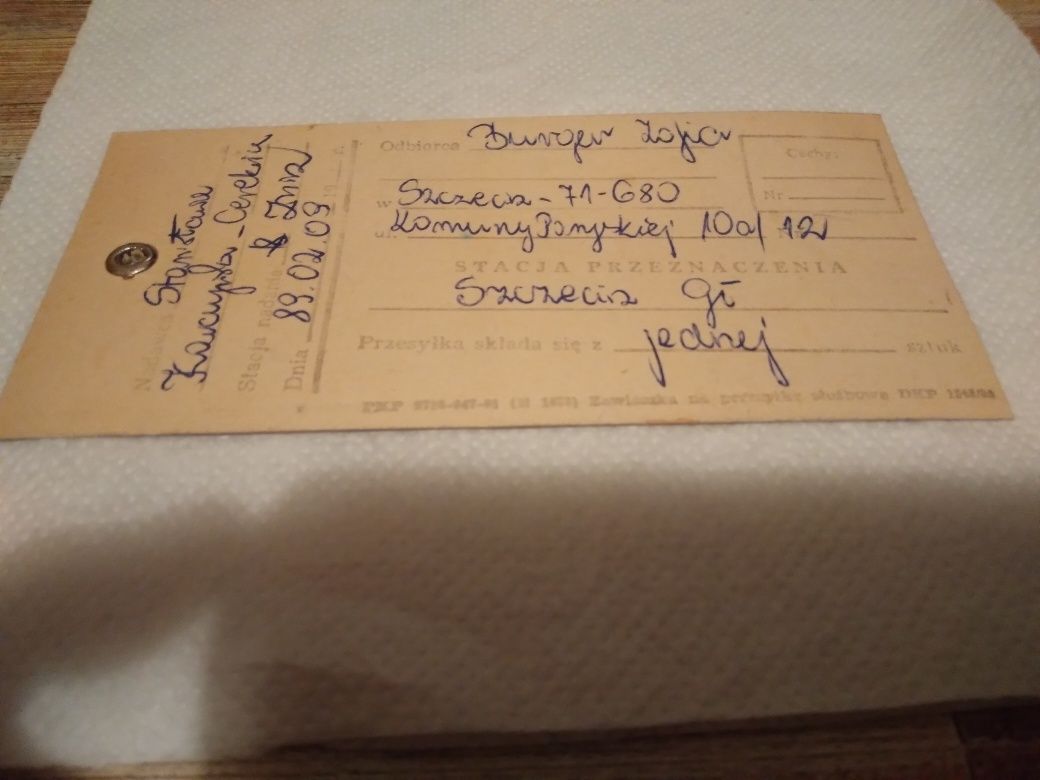 Odbiorca Burger Zofia
w Szczecin - 71-680
ul. Komuny Paryskiej 10a/12
Cechy:
Nr
STACJA PRZEZNACZENIA
Szczecin Gł
Przesyłka składa się z jednej sztuk
PKP Zawieszka na przesyłkę służbową DKP
Nadawca Stanisława
Stacja nadania
Dnia 89.02.09 19 r.